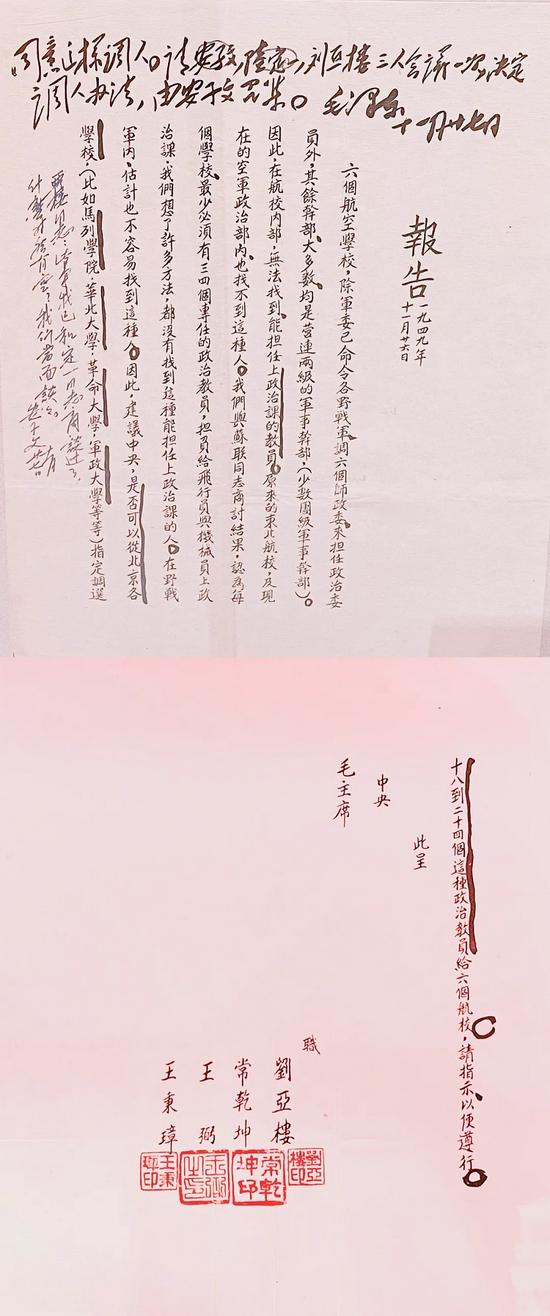 同意这样调人。请安子文,陆定一,刘亚楼三人会议一次,决定
调人办法,由安子文召集。 毛泽东
十一月廿七日
報告
一九四九年
十一月廿六日
六個航空學校,除軍委已命令各野戰軍調六個師政委來担任政治委
員外,其餘幹部大多數、均是营連兩級的軍事幹部,(少數團級軍事幹部)。
因此,在航校内部,無法找到能担任上政治課的教員。原來的東北航校,及現
在的空軍政治部内、也找不到這種人。我們與蘇联同志商討結果,認為每
個學校、最少必須有三四個專任的政治教員,担負給飛行員與機械員上政
治課,我們想了許多方法,都沒有找到這種能担任上政治課的人。在野戰
軍内,估計也不容易找到這種人。因此,建議中央,是否可以從北京各
學校,(比如馬列學院,華北大學,革命大學,軍政大學等等)指定調選
亚楼同志:此事我已和定一同志商谈过了,
什么时候有空,我们当面谈谈。安子文
十八到二十四個這種政治教員給六個航校,請指示、以便遵行。
此呈
中央
毛主席
職
劉亞樓
常乾坤
王弼
王秉璋
劉亞樓印
常乾坤印
王秉璋印